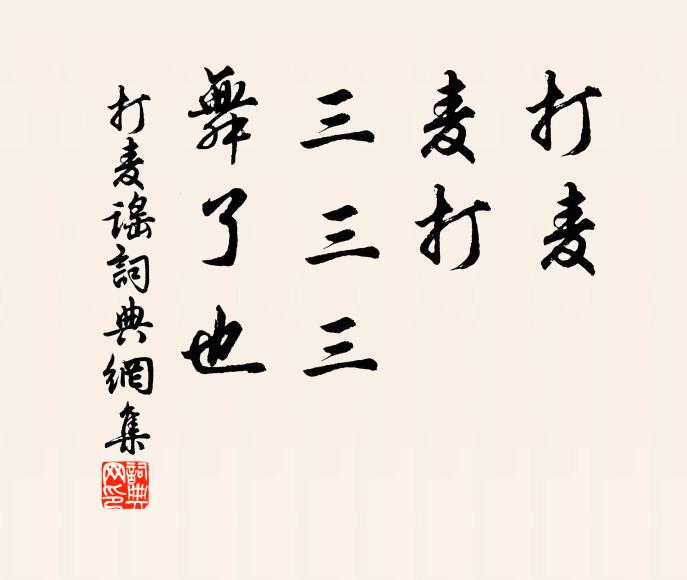 打麦
麦打
三三三
舞了也
打麦謡詞典網集
詞典网印